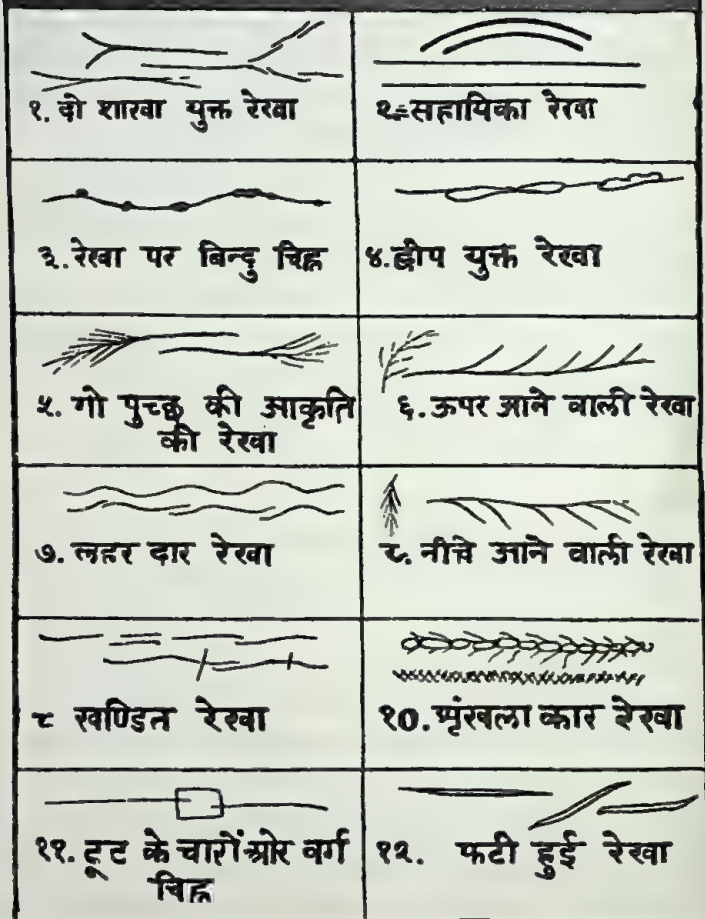 १. दो शाखा युक्त रेखा
२. सहायिका रेखा
३. रेखा पर बिन्दु चिह्न
४. द्वीप युक्त रेखा
५. गो पुच्छ की आकृति
की रेखा
६. ऊपर आने वाली रेखा
७. लहर दार रेखा
८. नीचे आने वाली रेखा
९ खण्डित रेखा
१०. शृंखला कार रेखा
११. टूट के चारों ओर वर्ग
चिह्न
१२. फटी हुई रेखा